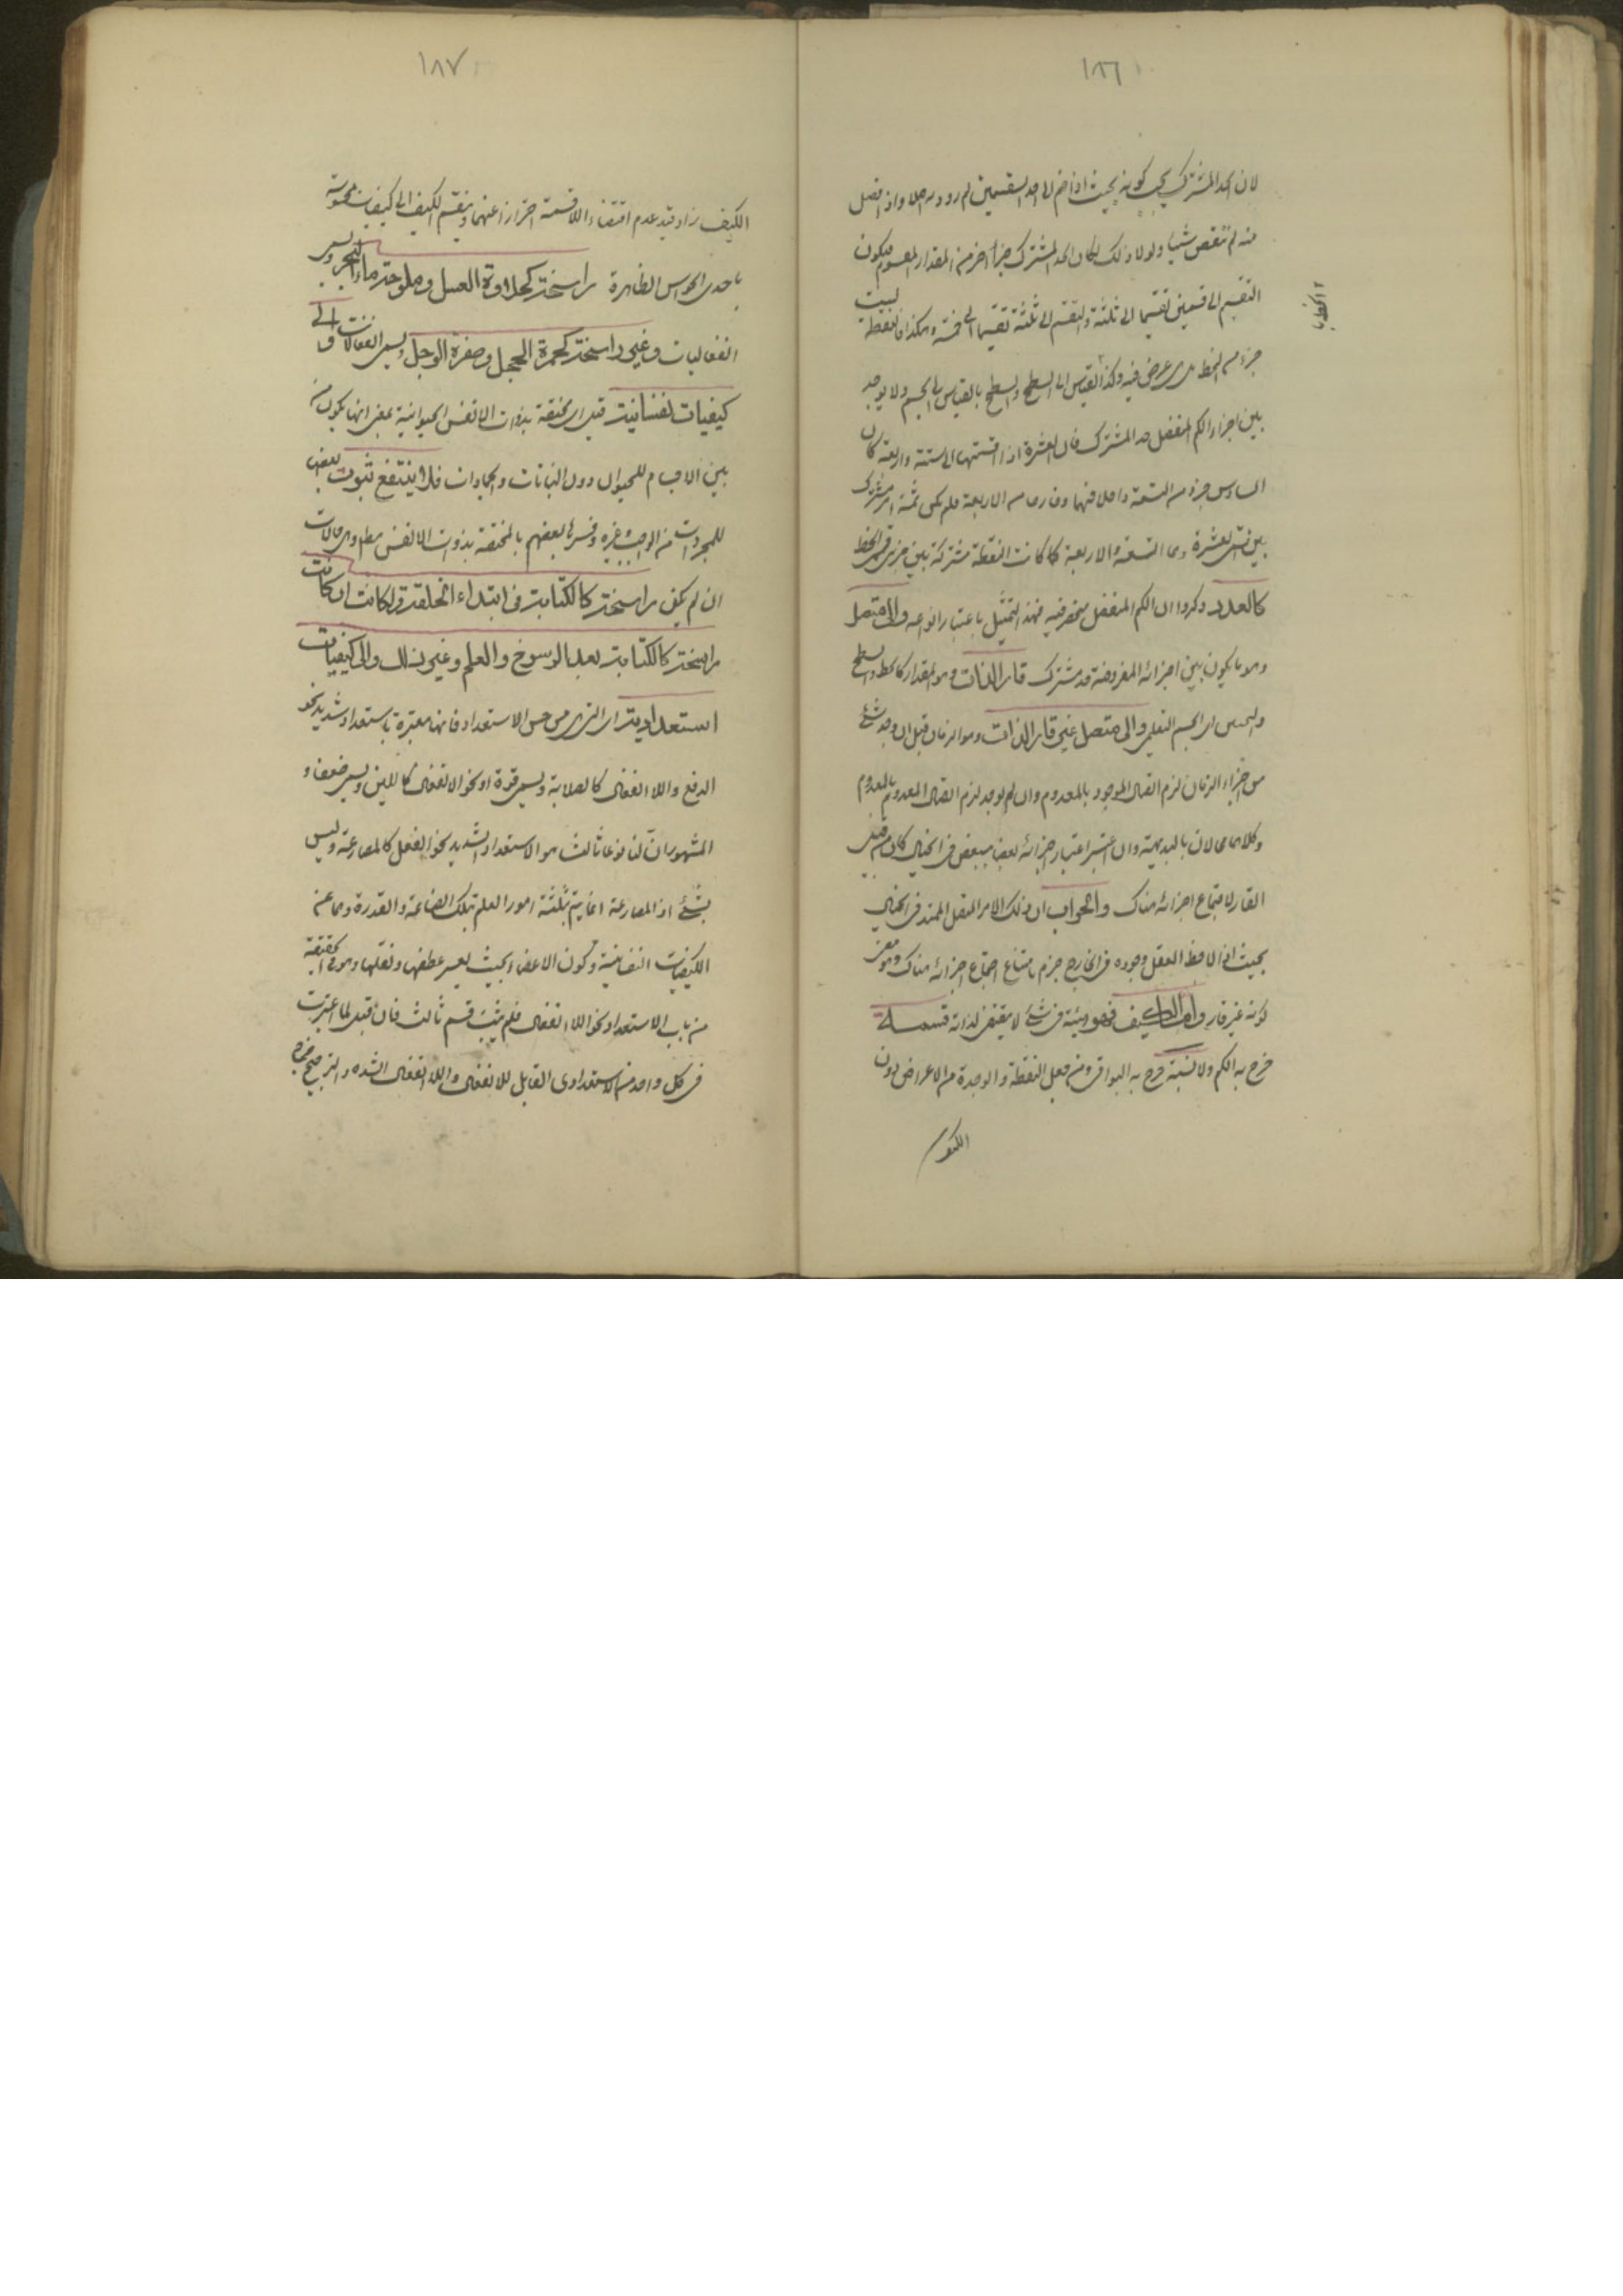 ١٨٦
لان الحد المشترك يجب كونه بحيث اذا ضم الى احد القسمين لم يزدد به اصلا واذا فصل
منه لم ينقص شيئا ولولا ذلك لكان الحد المشترك جزأ اخر من المقدار المقسوم فيكون
التقسيم الى قسمين تقسيما الى ثلثة والتقسيم الى ثلثة تقسيما الى خمسة وهكذا فالنقطة ليست
جزء من الخط بل هي عرض فيه وكذا بالقياس الى السطح والسطح بالقياس الى الجسم ولا يوجد
بين اجزاء الكم المنفصل حد المشترك فان العشرة اذا قسمتها الى ستة واربعة كان
السادس جزء من الستة داخلا فيها وخارجا من الاربعة فلم يكن ثمة امر مشترك
بين قسمي العشرة وهما الستة والاربعة كما كانت النقطة مشتركة بين جزئي قسمي الخط
كالعدد وذكروا ان الكم المنفصل منحصر فيه فهذا التمثيل باعتبار انواعه والى متصل
وهو ما يكون بين اجزائه المفروضة حد مشترك قار الذات وهو المقدار كالخط والسطح
والجسم اى الجسم التعليمي والى متصل غير قار الذات وهو الزمان قيل ان وجد شئ
من اجزاء الزمان لزم اتصال الموجود بالمعدوم وان لم يوجد لزم اتصال المعدوم بالمعدوم
وكلاهما محالان بالبديهة وان اعتبر اعتبار اجزائه بعضها ببعض في الخيال كان من قبيل
القار لاجتماع اجزائه هناك والجواب ان ذلك الامر المتصل الممتد في الخيال
بحيث اذا لاحظ العقل وجوده في الخارج جزم بامتناع اجتماع اجزائه هناك وهو معنى
كونه غير قار واما الكيف فهو هيئة في شئ لا يقتضي لذاته قسمة
خرج به الكم ولا نسبة خرج به البواقي ومن جعل النقطة والوحدة من الاعراض دون
١٨٧
الكيف زاد قيد عدم اقتضاء اللاقسمة احترازا عنهما وينقسم الكيف الى كيفيات محسوسة
باحدى الحواس الظاهرة راسخة كحلاوة العسل وملوحة ماء البحر ويسمى
انفعاليات وغير راسخة كحمرة الخجل وصفرة الوجل ويسمى انفعالات والى
كيفيات نفسانية قيل اى مختصة بذوات الانفس الحيوانية بمعنى انها يكون من
بين الاجسام للحيوان دون النباتات والجمادات فلا ينتفع ثبوت بعضها
للمجردات من الواجب وغيره وفسرها بعضهم بالمختصة بذوات الانفس مطلقا وهى حالات
ان لم يكن راسخة كالكتابة في ابتداء الخلقة وملكات ان كانت
راسخة كالكتابة بعد الرسوخ والعلم وغير ذلك والى كيفيات
استعدادية اى التي هى من جنس الاستعداد فانها معتبرة باستعداد شديد نحو
الدفع واللاانفعال كالصلابة ويسمى قوة او نحو الانفعال كاللين ويسمى ضعفا و
المشهور ان لها نوعا ثالثا هو الاستعداد الشديد نحو الفعل كالمصارعة وليس
بشئ اذ المصارعة انما يتم بثلثة امور العلم بتلك الصناعة والقدرة وهما من
الكيفيات النفسانية وكون الاعضاء بحيث يعسر عطفها ونقلها وهو في الحقيقة
من باب الاستعداد نحو اللاانفعال فلم يثبت قسم ثالث فان قيل لما اعتبرت
في كل واحد من الاستعدادى القابل للانفعال واللاانفعال الشدة والترجيح